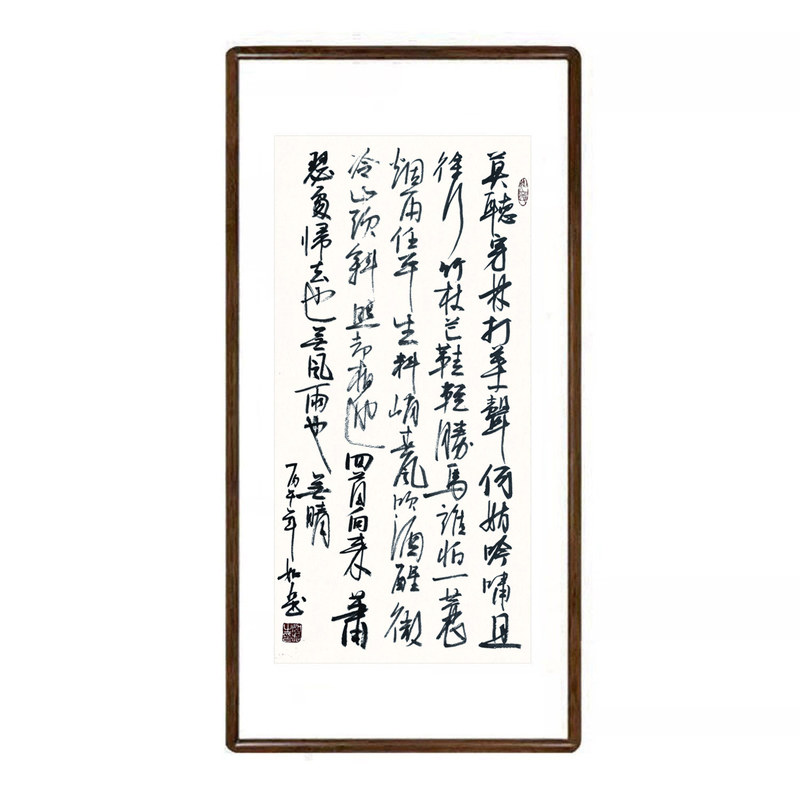 莫聽穿林打葉聲何妨吟嘯且
徐行竹杖芒鞋輕勝馬誰怕一蓑
烟雨任平生料峭春風吹酒醒微
冷山頭斜照却相迎回首向来蕭
瑟處歸去也無風雨也無晴
丙午年